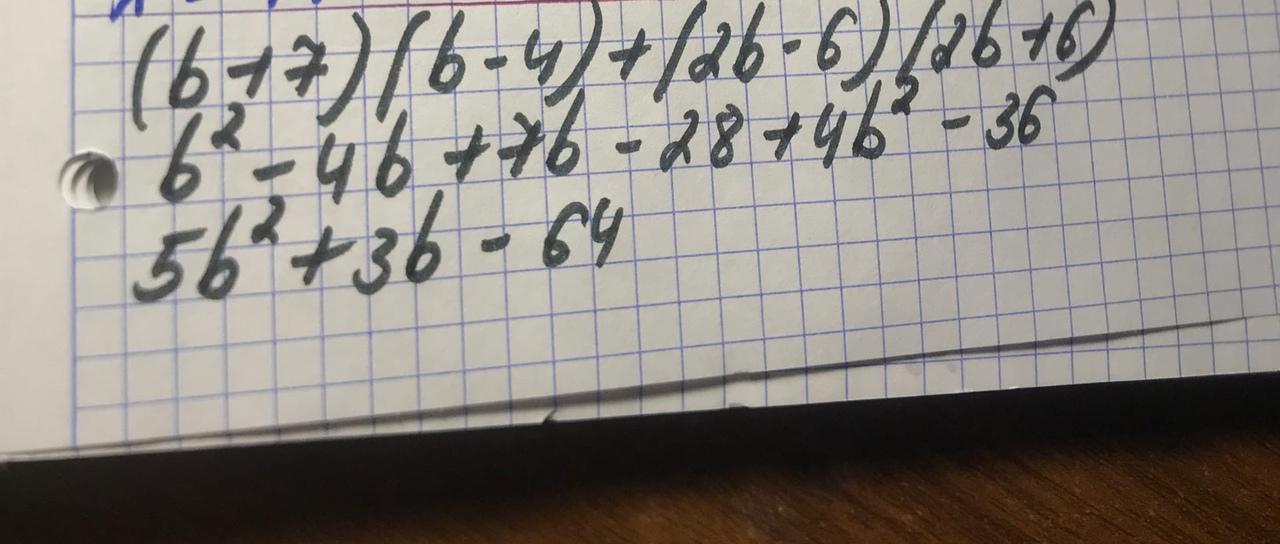 (b+7)(b-4)+(2b-6)(2b+6)
b²-4b+7b-28+4b²-36
5b²+3b-64